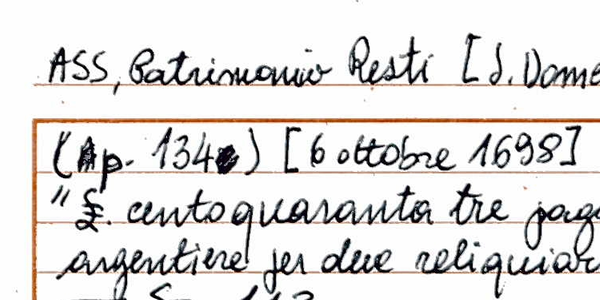 ASS, Patrimonio Resti [S. Dome
(p. 134) [6 ottobre 1698]
"£. centoquaranta tre pag
argentiere per due reliquiar
113